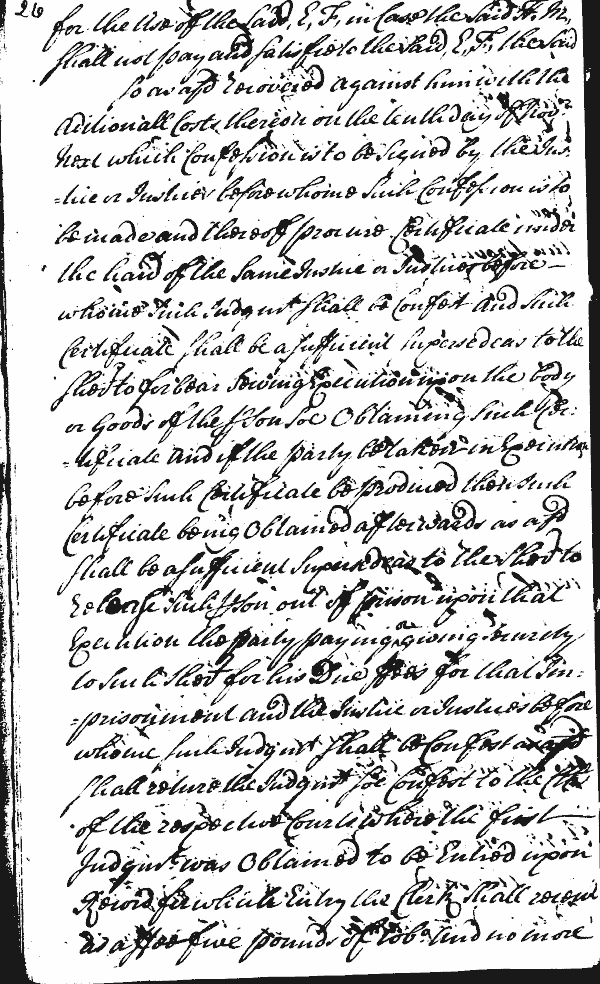 26
for the Use of the said, E, F, in Case the said A, B,
shall not pay and satisfie to the said, E, F, the said
so as afsd recovered against him with the
additionall Costs thereon on the tenth day of Novr
next which Confession is to be signed by the Jus-
-tice or Justices before whome such Confession is to
be made and thereof procure Certificate under
the hand of the same Justice or Justices before
whome such Judgmt shall be Confest And such
Certificate shall be a sufficient Supersedeas to the
Sherr to forbear serving Execution upon the body
or goods of the pson soe Obtaining such Cer-
-tificate and if the party be taken in Execution
before such Certificate be produced then such
Certificate being Obtained afterwards as afsd
shall be a sufficient Supersedeas to the Sherr to
release such pson out of prison upon that
Execution the party paying or giving security
to such Sherr for his Due ffees for that Im-
-prisonment and the Justice or Justices before
whome such Judgmt shall be Confest as afsd
shall return the Judgmt soe Confest to the Clk
of the respective Courts where the first
Judgmt was Obtained to be Entred upon
Record for which Entry the Clerk shall receive
as a ffee five pounds of Tobo. and no more